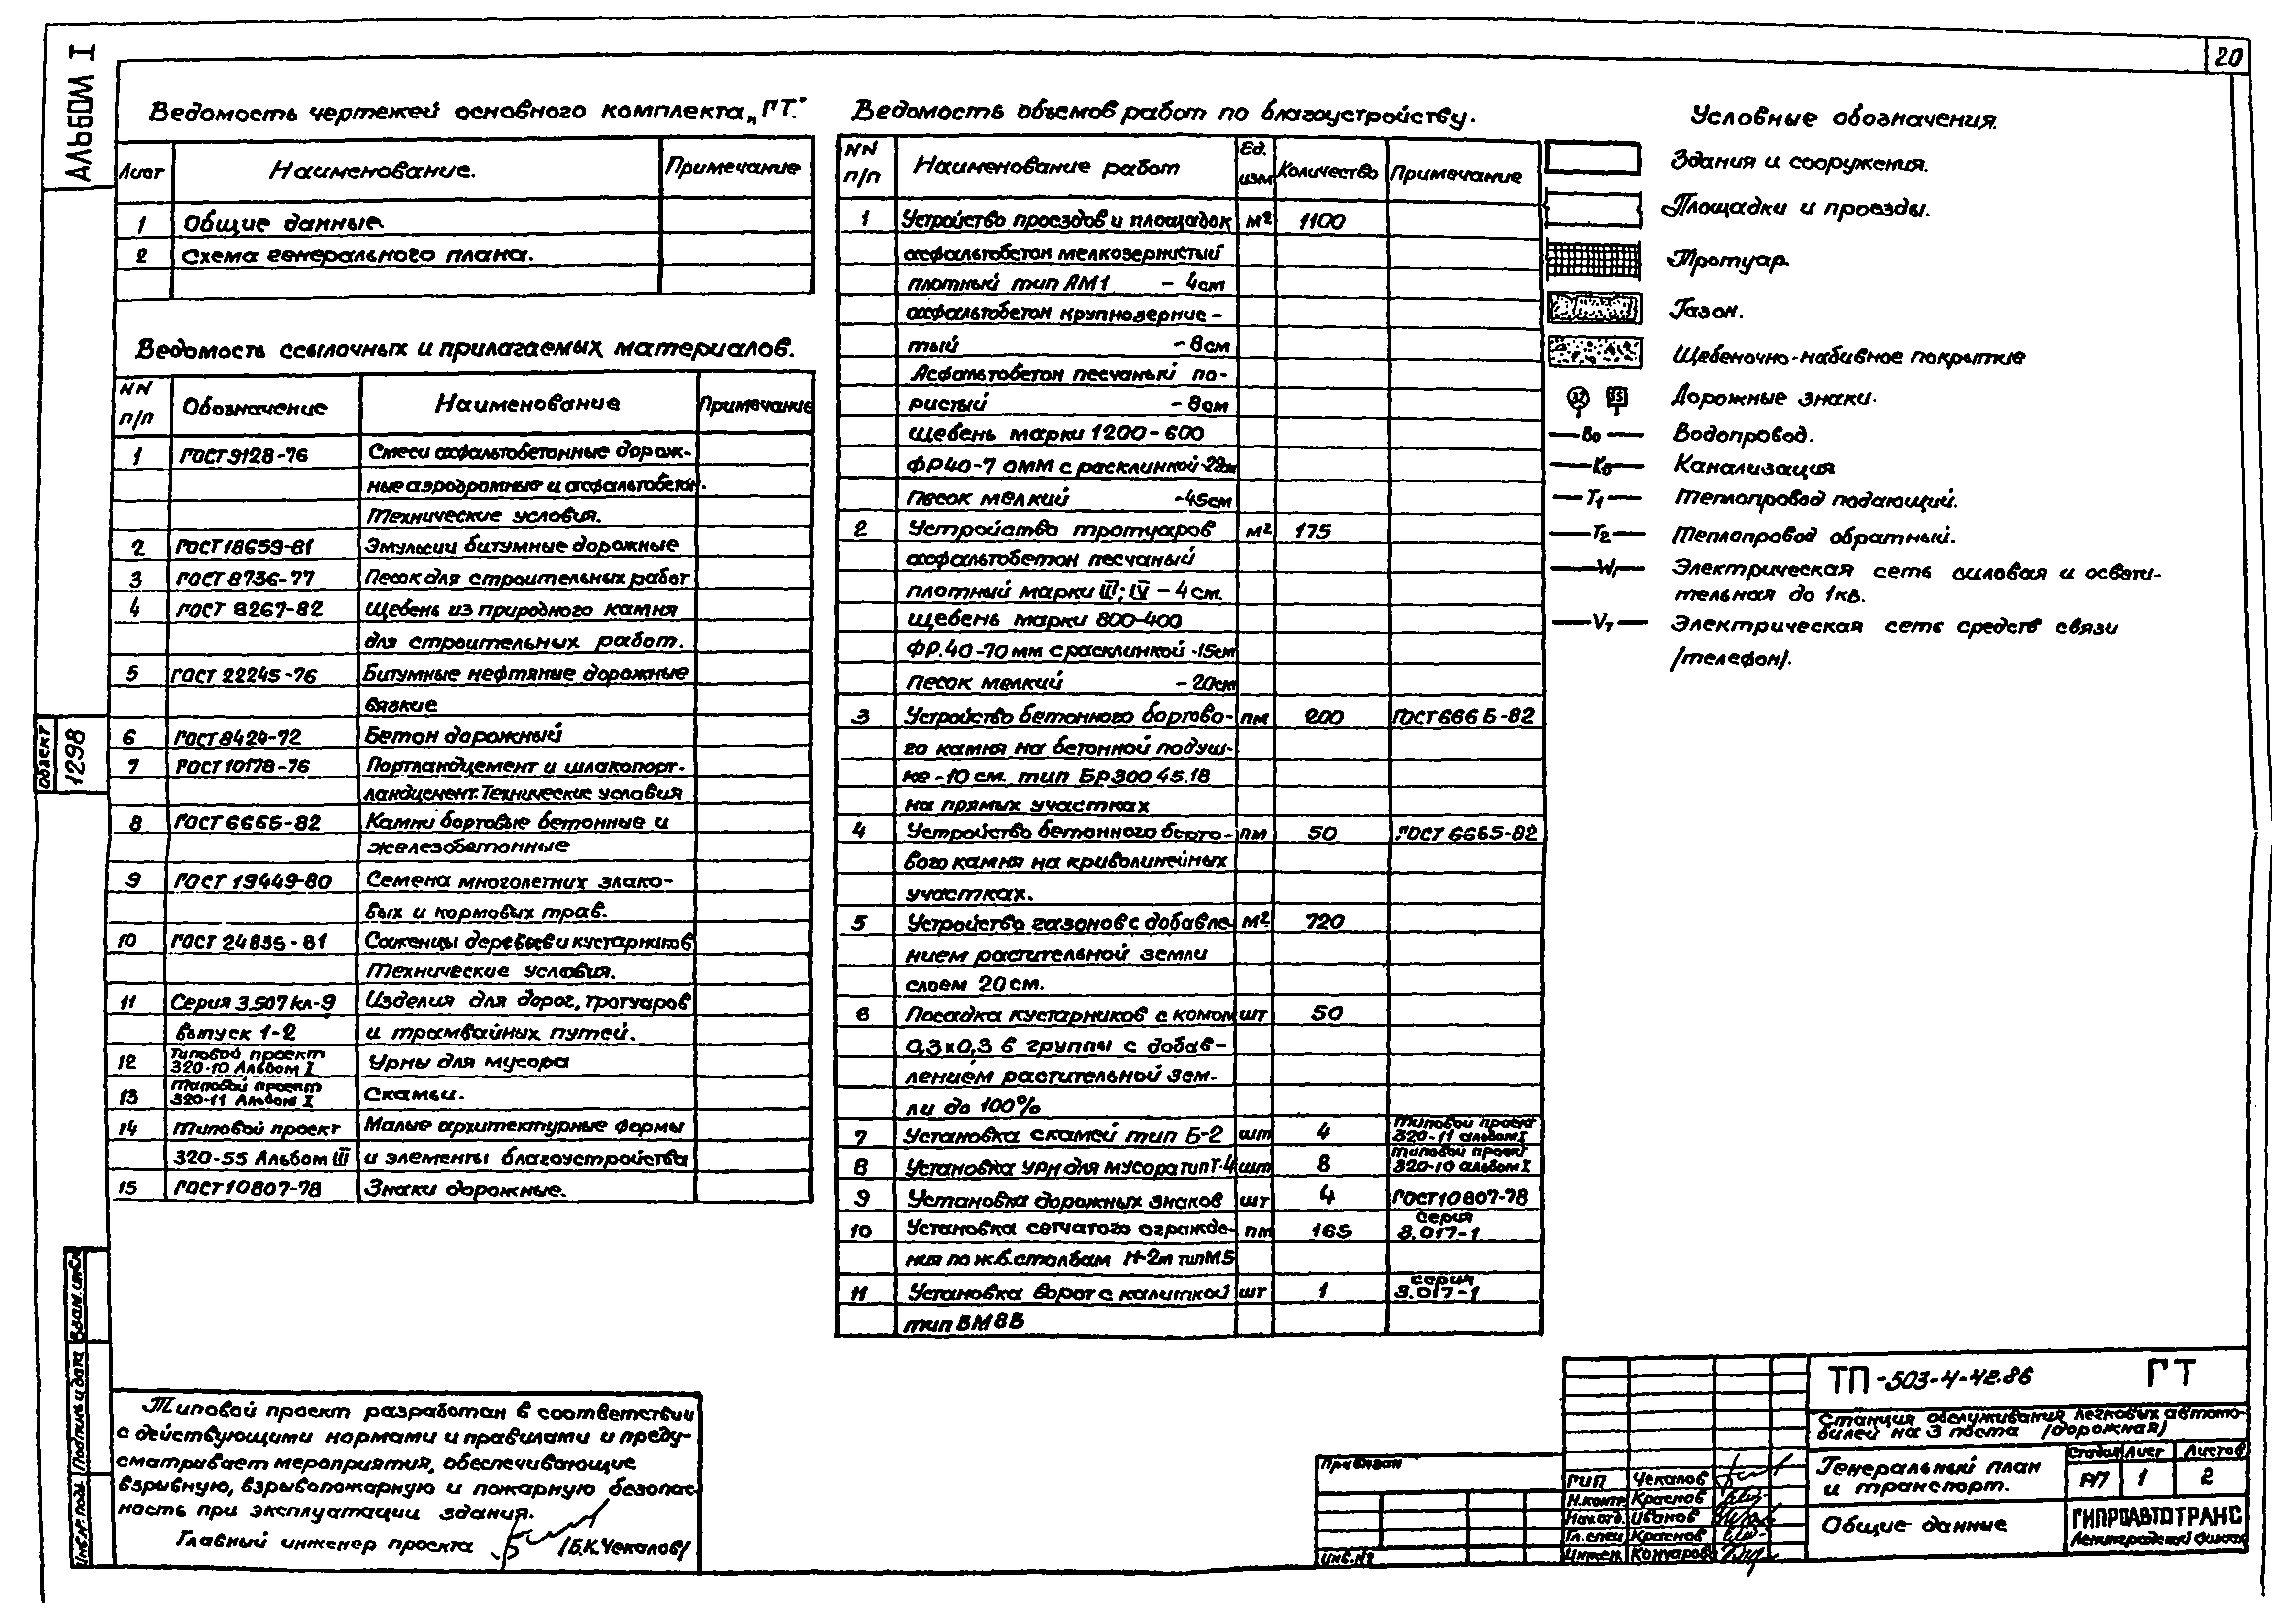 20
АЛЬБОМ I
Ведомость чертежей основного комплекта „ГТ“
Лист Наименование. Примечание
1 Общие данные.
2 Схема генерального плана.
Ведомость ссылочных и прилагаемых материалов.
NN п/п Обозначение Наименование Примечание
1 ГОСТ 9128-76 Смеси асфальтобетонные дорож-
ные аэродромные и асфальтобетон.
Технические условия.
2 ГОСТ 18659-81 Эмульсии битумные дорожные
3 ГОСТ 8736-77 Песок для строительных работ
4 ГОСТ 8267-82 Щебень из природного камня
для строительных работ.
5 ГОСТ 22245-76 Битумные нефтяные дорожные
вязкие
6 ГОСТ 8424-72 Бетон дорожный
7 ГОСТ 10178-76 Портландцемент и шлакопорт-
ландцемент. Технические условия
8 ГОСТ 6665-82 Камни бортовые бетонные и
железобетонные
9 ГОСТ 19449-80 Семена многолетних злако-
вых и кормовых трав.
10 ГОСТ 24835-81 Саженцы деревьев и кустарников
Технические условия.
11 Серия 3.507 кл-9 Изделия для дорог, тротуаров
выпуск 1-2 и трамвайных путей.
12 Типовой проект 320-10 Альбом I Урны для мусора
13 Типовой проект 320-11 Альбом I Скамьи.
14 Типовой проект Малые архитектурные формы
320-55 Альбом III и элементы благоустройства
15 ГОСТ 10807-78 Знаки дорожные.
Ведомость объемов работ по благоустройству.
NN п/п Наименование работ Ед. изм Количество Примечание
1 Устройство проездов и площадок м² 1100
асфальтобетон мелкозернистый
плотный тип АМ1 - 4см
асфальтобетон крупнозернис-
тый - 8см
Асфальтобетон песчаный по-
ристый - 8см
щебень марки 1200-600
ФР 40-70мм с расклинкой-22см
песок мелкий -45см
2 Устройство тротуаров м² 175
асфальтобетон песчаный
плотный марки III; IV - 4см.
щебень марки 800-400
ФР. 40-70 мм с расклинкой -15см
песок мелкий - 20см
3 Устройство бетонного бортово- пм 200 ГОСТ 6665-82
го камня на бетонной подуш-
ке -10 см. тип БР300 45.18
на прямых участках
4 Устройство бетонного борто- пм 50 ГОСТ 6665-82
вого камня на криволинейных
участках.
5 Устройство газонов с добавле- м² 720
нием растительной земли
слоем 20см.
6 Посадка кустарников с комом шт 50
0,3х0,3 в группы с добав-
лением растительной зем-
ли до 100%
7 Установка скамей тип Б-2 шт 4 Типовой проект 320-11 альбом I
8 Установка урн для мусора тип Т-4 шт 8 типовой проект 320-10 альбом I
9 Установка дорожных знаков шт 4 ГОСТ 10807-78
10 Установка сетчатого огражде- пм 165 серия 3.017-1
ния по ж.б. столбам Н-2м тип М5
11 Установка ворот с калиткой шт 1 серия 3.017-1
тип ВМ8В
Условные обозначения.
Здания и сооружения.
Площадки и проезды.
Тротуар.
Газон.
Щебеночно-набивное покрытие
Дорожные знаки.
В0 Водопровод.
К0 Канализация
Т1 Теплопровод подающий.
Т2 Теплопровод обратный.
W1 Электрическая сеть силовая и освети-
тельная до 1кв.
V7 Электрическая сеть средств связи
/телефон/.
Объект
1298
Взам. инв.
Подпись и дата
Инв.№ подл
Типовой проект разработан в соответствии
с действующими нормами и правилами и преду-
сматривает мероприятия, обеспечивающие
взрывную, взрывопожарную и пожарную безопас-
ность при эксплуатации здания.
Главный инженер проекта /Б.К.Чекалов/
Привязан
Инв.№
ГИП Чекалов
Н.контр Краснов
Нач.отд. Иванов
Гл.спец Краснов
Инжен.
ТП-503-4-42.86 ГТ
Станция обслуживания легковых автомо-
билей на 3 поста (дорожная)
Генеральный план
и транспорт.
Стадия Лист Листов
РП 1 2
Общие данные
ГИПРОАВТОТРАНС
Ленинградский филиал